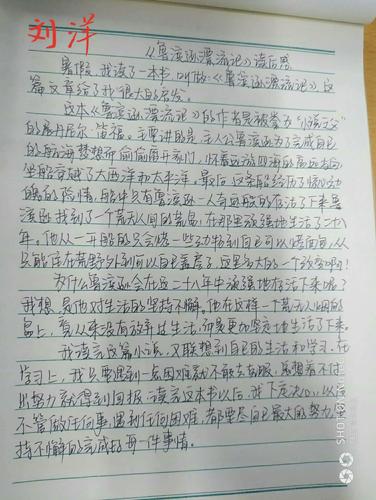 刘洋
《鲁滨逊漂流记》读后感
暑假,我读了一本书,叫做《鲁滨逊漂流记》,这
篇文章给了我很大的启发。
这本《鲁滨逊漂流记》的作者是被誉为“小说之父”
的丹尼尔·笛福。主要讲的是:主人公鲁滨逊为了完成自己
的航海梦想而偷偷离开家门,怀着
坐船穿越了大西洋和太平洋。最后,这条船经历了惊心动
魄的险情,船中只有鲁滨逊一人奇迹般的存活了下来鲁
滨逊找到了一个荒无人间的荒岛,在那里顽强地生活了二十八
年。他从一开始的只会烧一些动物到自己可以烤面包,从
只能住在荒野外到可以自己盖房子,这是多大的一个改变啊!
为什么鲁滨逊会在这二十八年中顽强地存活下来呢?
我想,是他对生活的坚持不懈。他在这样一个荒无人烟的
岛上,看从来没有放弃过生活,而是更加坚定地生活了下来。
我读完这篇小说,又联想到自己的生活和学习。在
学习上,我只要遇到一点困难就不敢去克服,总想着不付
出努力就得到回报。读完这本书以后,我下定决心,以后
不管做任何事,遇到任何困难,都要尽自己最大的努力,坚
持不懈的完成好每一件事情。